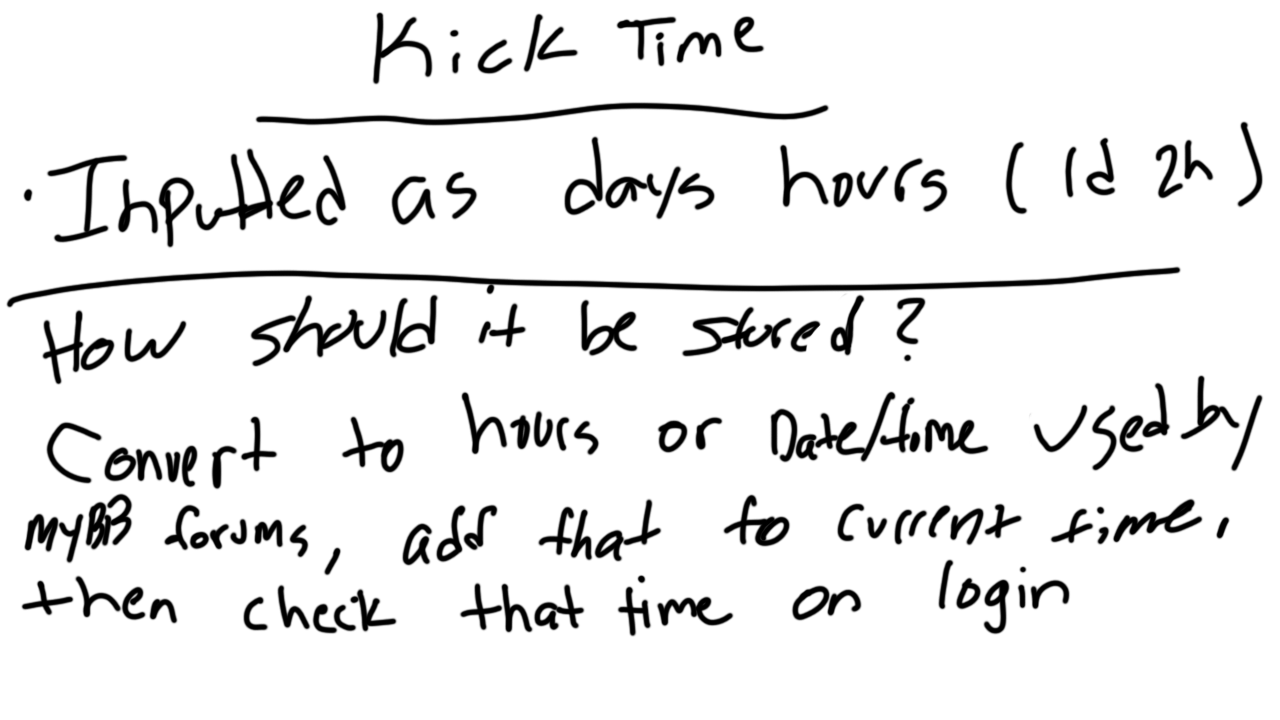 Kick Time
· Inputted as days hours (1d 2h)
How should it be stored?
Convert to hours or Date/time used by
MyBB forums, add that to current time,
then check that time on login